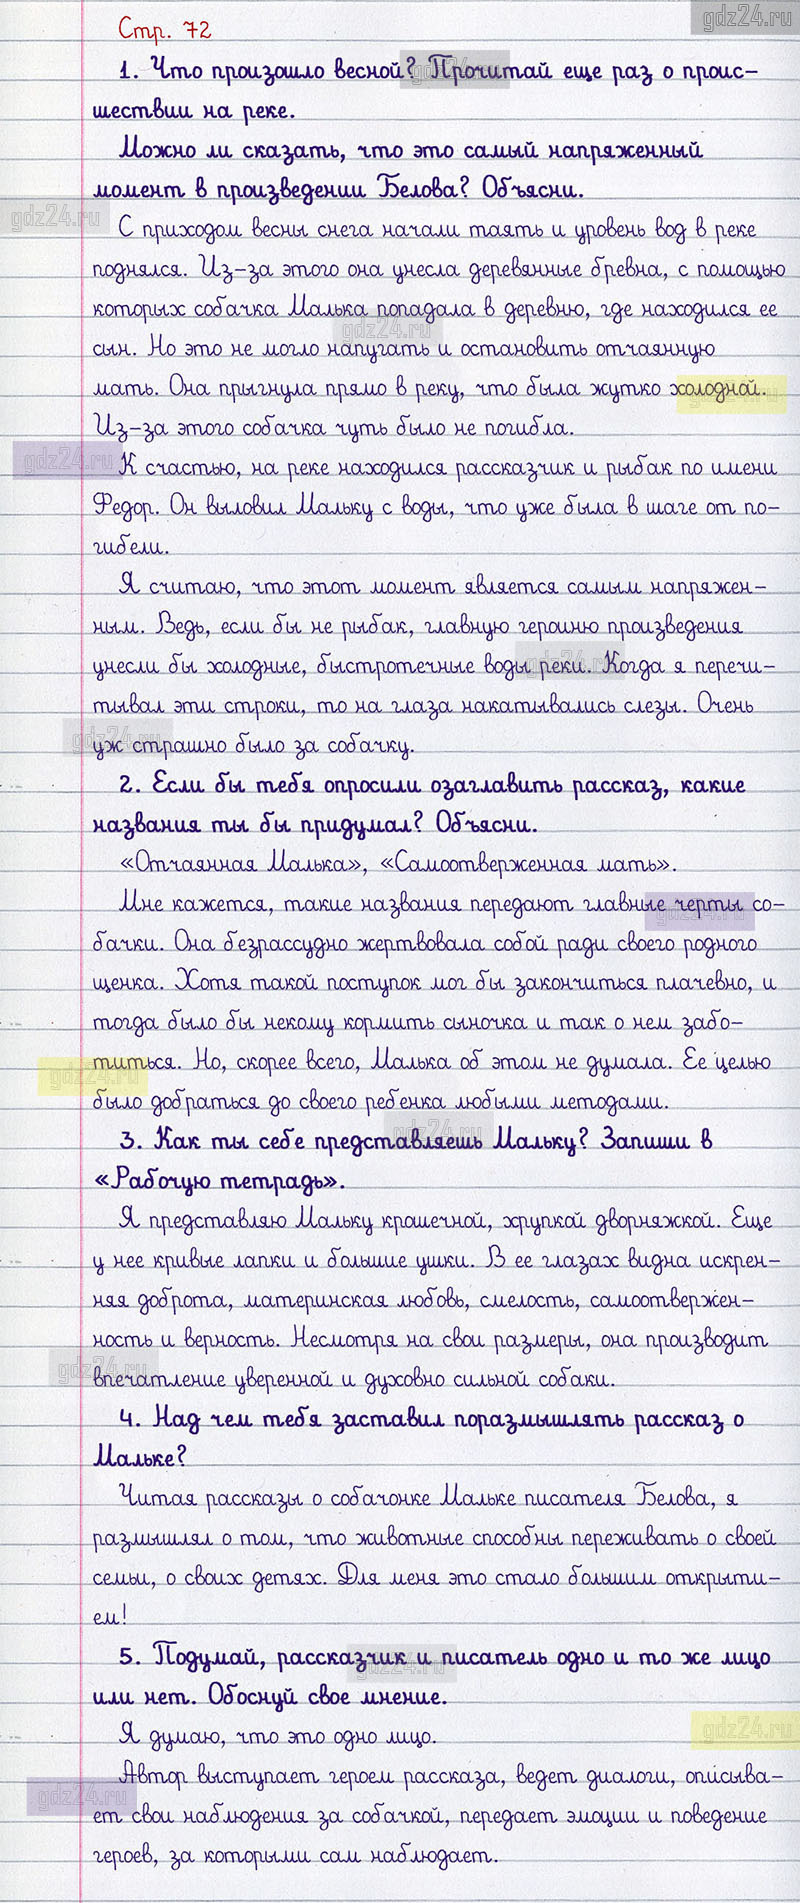 gdz24.ru
Стр. 72
1. Что произошло весной? Прочитай еще раз о проис-
gdz24.ru
шествии на реке.
Можно ли сказать, что это самый напряженный
момент в произведении Белова? Объясни.
gdz24.ru
С приходом весны снега начали таять и уровень вод в реке
поднялся. Из-за этого она унесла деревянные бревна, с помощью
которых собачка Малька попадала в деревню, где находился ее
gdz24.ru
сын. Но это не могло напугать и остановить отчаянную
мать. Она прыгнула прямо в реку, что была жутко холодной.
gdz24.ru
Из-за этого собачка чуть было не погибла.
gdz24.ru
К счастью, на реке находился рассказчик и рыбак по имени
Федор. Он выловил Мальку с воды, что уже была в шаге от по-
гибели.
Я считаю, что этот момент является самым напряжен-
ным. Ведь, если бы не рыбак, главную героиню произведения
унесли бы холодные, быстротечные воды реки. Когда я перечи-
gdz24.ru
тывал эти строки, то на глаза накатывались слезы. Очень
gdz24.ru
уж страшно было за собачку.
2. Если бы тебя опросили озаглавить рассказ, какие
названия ты бы придумал? Объясни.
«Отчаянная Малька», «Самоотверженная мать».
Мне кажется, такие названия передают главные черты со-
gdz24.ru
бачки. Она безрассудно жертвовала собой ради своего родного
щенка. Хотя такой поступок мог бы закончиться плачевно, и
тогда было бы некому кормить сыночка и так о нем забо-
титься. Но, скорее всего, Малька об этом не думала. Ее целью
gdz24.ru
было добраться до своего ребенка любыми методами.
gdz24.ru
3. Как ты себе представляешь Мальку? Запиши в
«Рабочую тетрадь».
Я представляю Мальку крошечной, хрупкой дворняжкой. Еще
у нее кривые лапки и большие ушки. В ее глазах видна искрен-
няя доброта, материнская любовь, смелость, самоотвержен-
ность и верность. Несмотря на свои размеры, она производит
gdz24.ru
впечатление уверенной и духовно сильной собаки.
4. Над чем тебя заставил поразмышлять рассказ о
Мальке?
Читая рассказы о собачонке Мальке писателя Белова, я
размышлял о том, что животные способны переживать о своей
семьи, о своих детях. Для меня это стало большим открыти-
ем!
5. Подумай, рассказчик и писатель одно и то же лицо
gdz24.ru
или нет. Обоснуй свое мнение.
Я думаю, что это одно лицо.
gdz24.ru
Автор выступает героем рассказа, ведет диалоги, описыва-
gdz24.ru
ет свои наблюдения за собачкой, передает эмоции и поведение
героев, за которыми сам наблюдает.